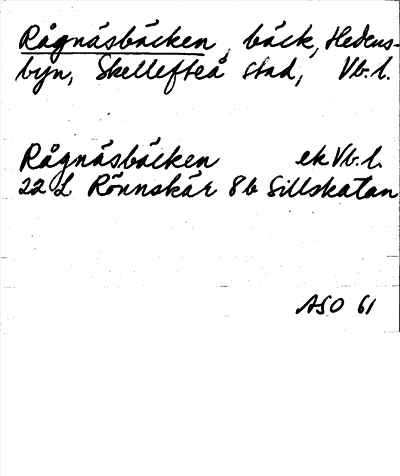 Rågnäsbäcken, bäck, Hedens-
byn, Skellefteå stad, Vb.l.
Rågnäsbäcken ek Vb.l.
22 L Rönnskär 8b Sillskatan
ASO 61